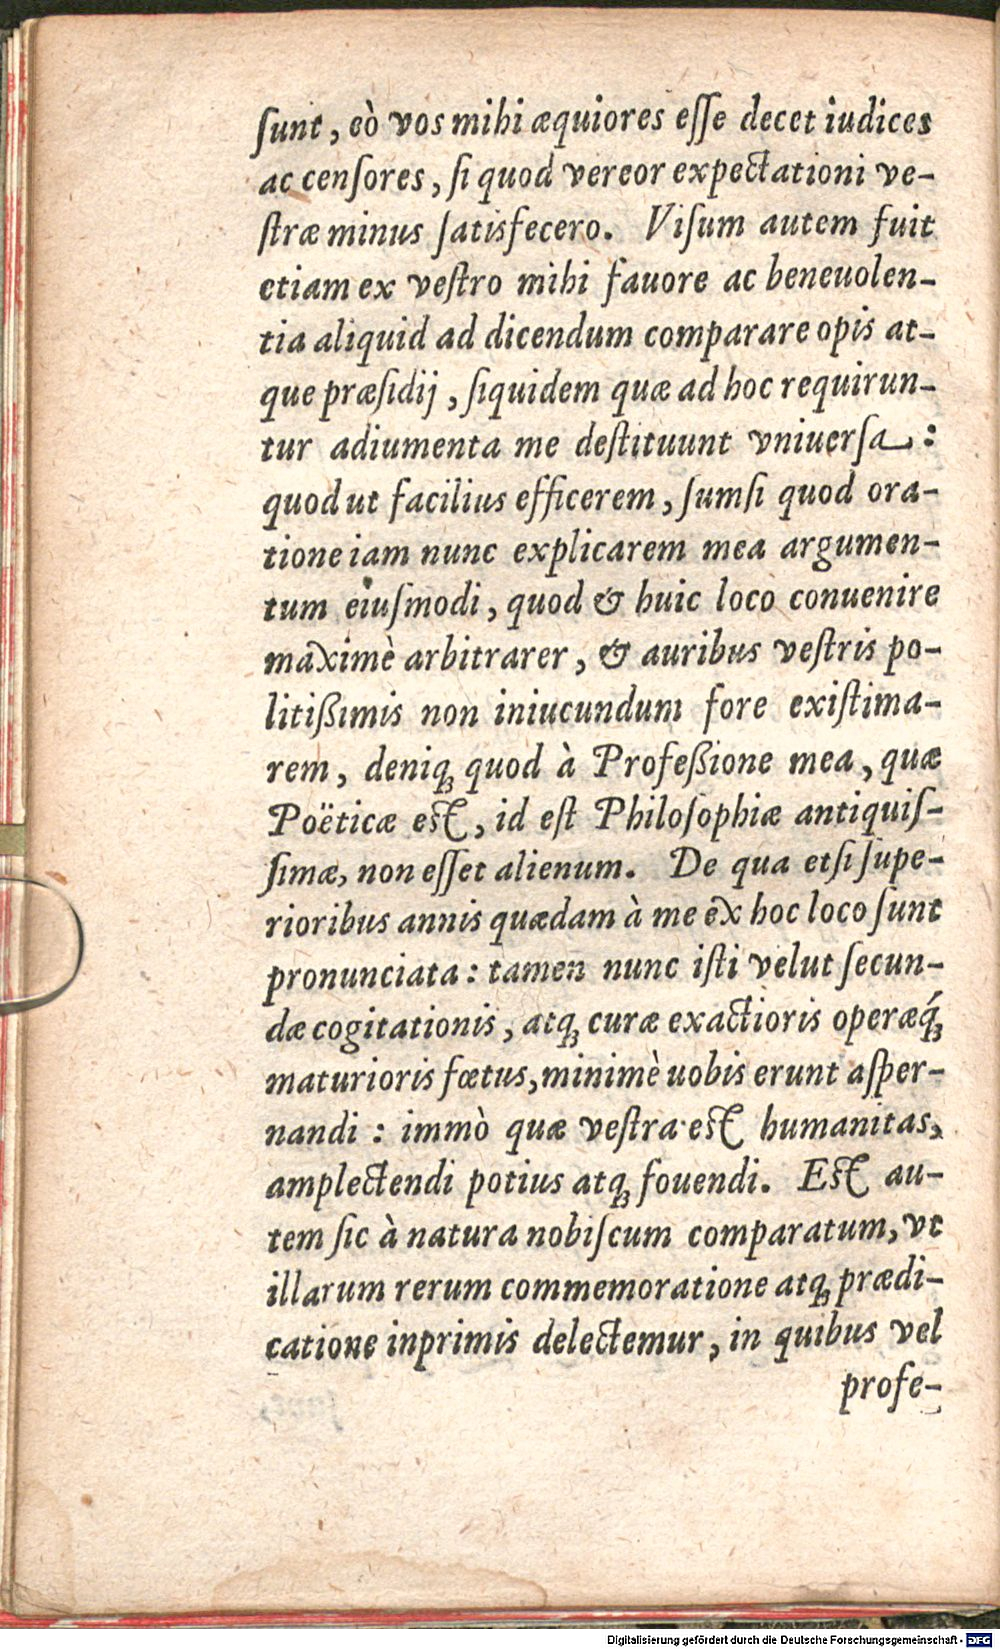 ſunt, eò vos mihi æquiores eſſe decet iudices
ac cenſores, ſi quod vereor expectationi ve-
ſtræ minus ſatisfecero. Viſum autem fuit
etiam ex veſtro mihi fauore ac beneuolen-
tia aliquid ad dicendum comparare opis at-
que præſidij, ſiquidem quæ ad hoc requirun-
tur adiumenta me deſtituunt vniuerſa:
quod ut facilius efficerem, ſumſi quod ora-
tione iam nunc explicarem mea argumen-
tum eiuſmodi, quod & huic loco conuenire
maximè arbitrarer, & auribus veſtris po-
litißimis non iniucundum fore exiſtima-
rem, deniq; quod à Profeßione mea, quæ
Poëticæ eſt, id eſt Philoſophiæ antiquiſ-
ſimæ, non eſſet alienum. De qua etſi ſupe-
rioribus annis quædam à me ex hoc loco ſunt
pronunciata: tamen nunc iſti velut ſecun-
dæ cogitationis, atq; curæ exactioris operæq́;
maturioris fœtus, minimè uobis erunt aſper-
nandi: immò quæ veſtra eſt humanitas,
amplectendi potius atq; fouendi. Eſt au-
tem ſic à natura nobiſcum comparatum, vt
illarum rerum commemoratione atq; prædi-
catione inprimis delectemur, in quibus vel
profe-
Digitalisierung gefördert durch die Deutsche Forschungsgemeinschaft - DFG